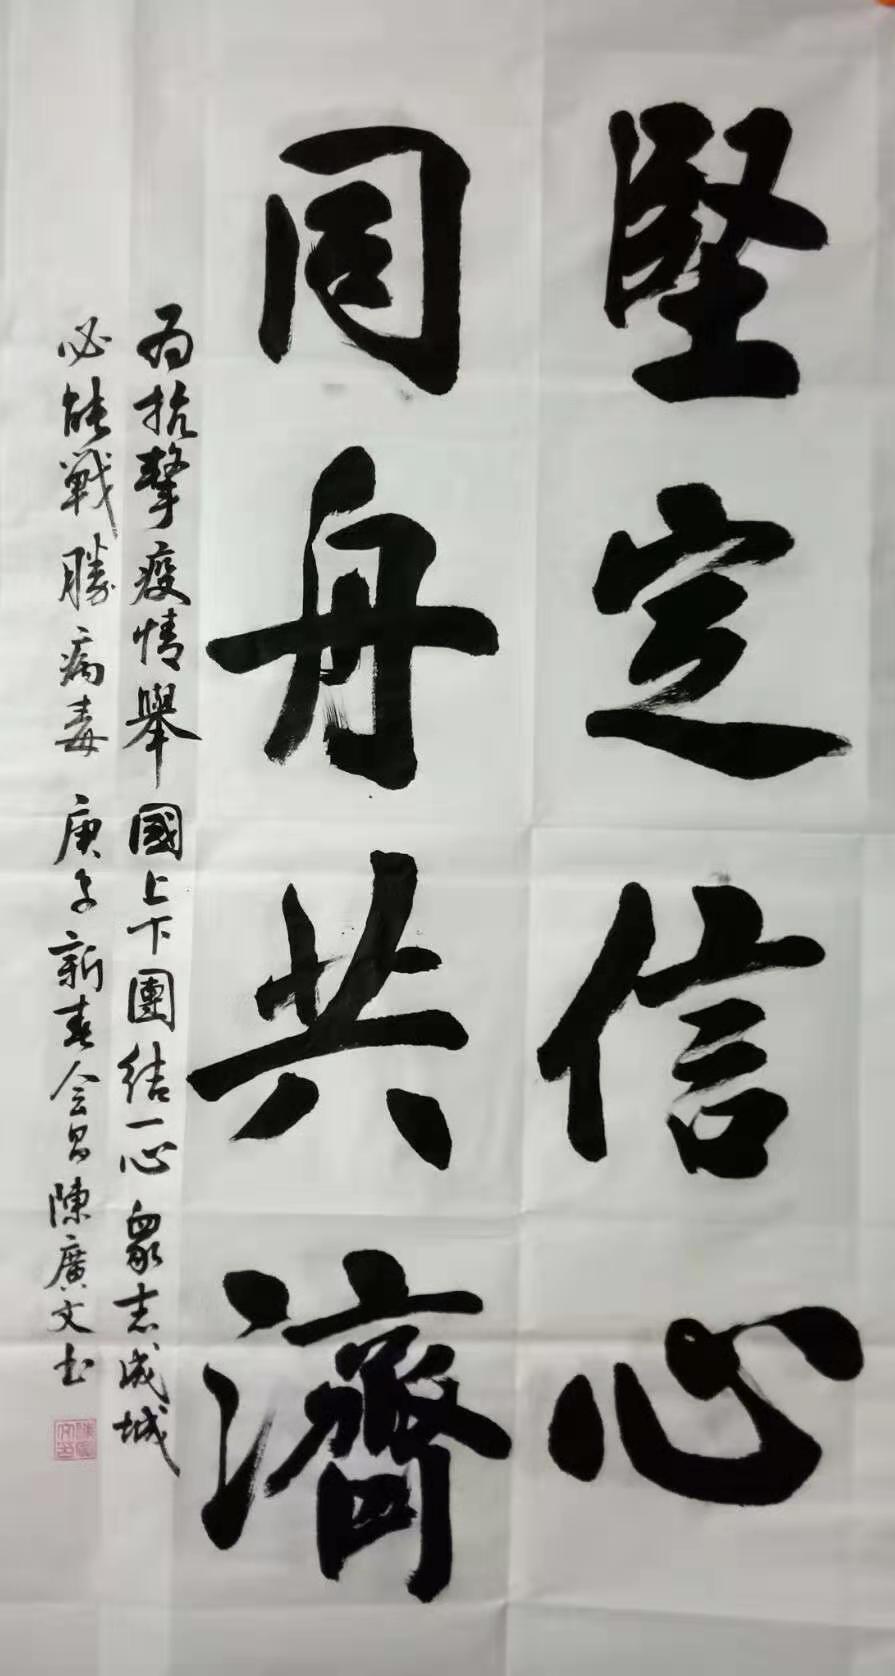 堅定信心
同舟共濟
為抗擊疫情舉國上下團結一心眾志成城
必能戰勝病毒 庚子新春會昌陳廣文书